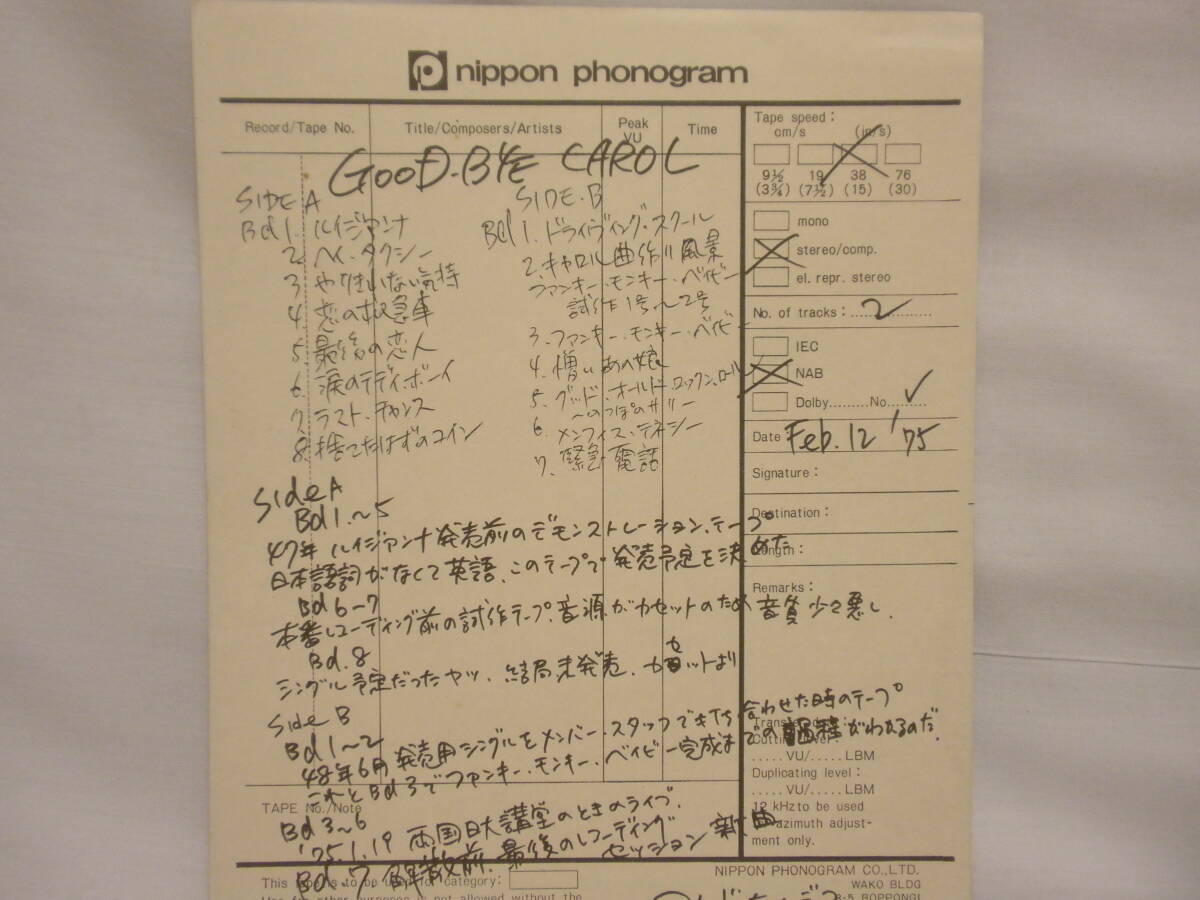 nippon phonogram
Record/Tape No.
Title/Composers/Artists
Peak VU
Time
GOOD-BYE CAROL
SIDE A
Bd 1. ルイジアンナ
2. ヘイ・タクシー
3. やりきれない気持
4. 恋の救急車
5. 最後の恋人
6. 涙のテディ・ボーイ
7. ラスト・チャンス
8. 捨てたはずのコイン
SIDE.B
Bd 1. ドライヴィング・スクール
2. キャロル曲作り風景
ファンキー・モンキー・ベイビー
試作1号〜2号
3. ファンキー・モンキー・ベイビー
4. 憎いあの娘
5. グッド・オールド・ロックン・ロール
〜のっぽのサリー
6. メンフィス・テネシー
7. 緊急電話
Side A
Bd 1.〜5
47年 ルイジアンナ発売前のデモンストレーション・テープ
日本語詞がなくて英語、このテープで発売予定を決めた
Bd 6〜7
本番レコーディング前の試作テープ、音源がカセットのため音質少々悪し.
Bd. 8
シングル予定だったヤツ、結局未発売、カセットより
Side B
Bd 1〜2
48年6月発売用シングルをメンバー、スタッフで打ち合わせた時のテープ
これとBd 3でファンキー・モンキー・ベイビー完成までの過程がわかるのだ.
Bd 3〜6
'75.1.19 両国日大講堂のときのライブ.
Bd.7 解散前、最後のレコーディング
セッション 新曲
Tape speed:
cm/s (in/s)
9½ 19 38 76
(3¾) (7½) (15) (30)
mono
stereo/comp.
el. repr. stereo
No. of tracks: 2
IEC
NAB
Dolby.........No.........
Date Feb. 12 '75
Signature:
Destination:
Length:
Remarks:
..... VU/..... LBM
Duplicating level:
..... VU/..... LBM
12 kHz to be used
azimuth adjust-
ment only.
TAPE No./Note
category:
NIPPON PHONOGRAM CO.,LTD.
WAKO BLDG